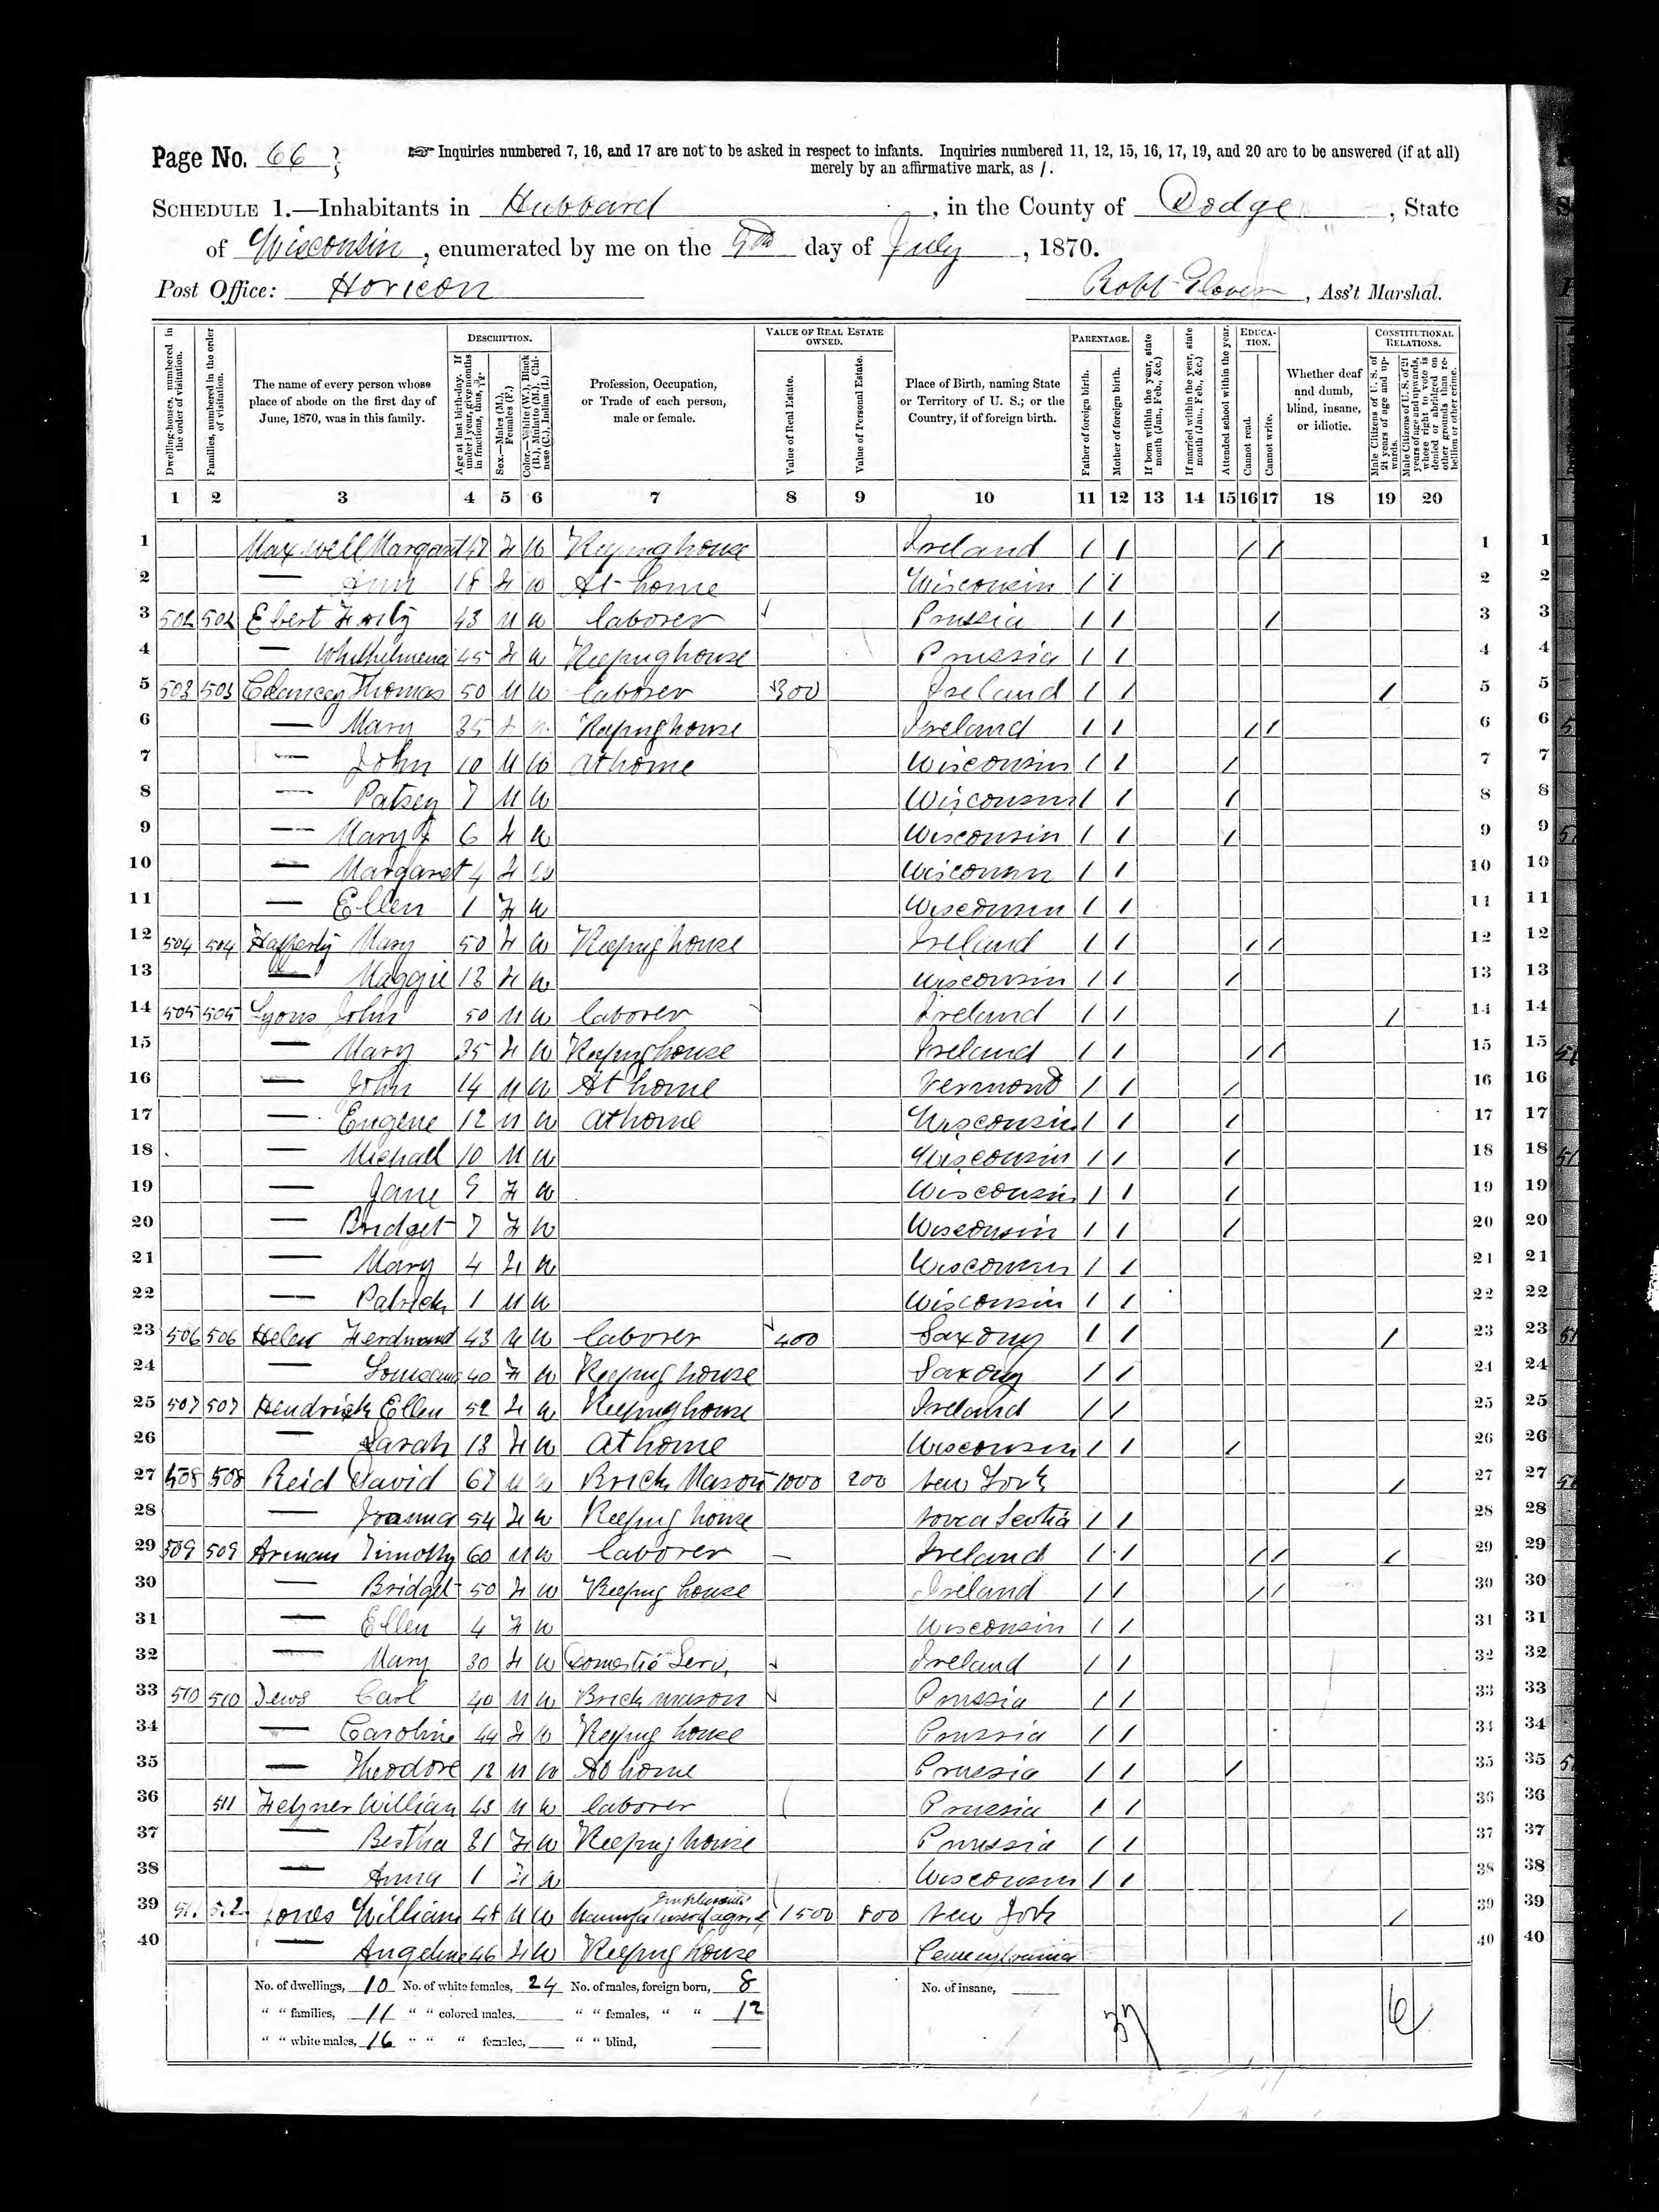 Page No. 66
☞ Inquiries numbered 7, 16, and 17 are not to be asked in respect to infants. Inquiries numbered 11, 12, 15, 16, 17, 19, and 20 are to be answered (if at all)
merely by an affirmative mark, as /.
SCHEDULE 1.—Inhabitants in Hubbard, in the County of Dodge, State
of Wisconsin, enumerated by me on the 5th day of July, 1870.
Post Office: Horicon Robt Glover, Ass't Marshal.
Dwelling-houses, numbered in the order of visitation.
Families, numbered in the order of visitation.
The name of every person whose place of abode on the first day of June, 1870, was in this family.
DESCRIPTION.
Age at last birth-day. If under 1 year, give months in fractions, thus, 3/12.
Sex.—Males (M.), Females (F.)
Color.—White (W.), Black (B.), Mulatto (M.), Chinese (C.), Indian (I.)
Profession, Occupation, or Trade of each person, male or female.
VALUE OF REAL ESTATE OWNED.
Value of Real Estate.
Value of Personal Estate.
Place of Birth, naming State or Territory of U. S.; or the Country, if of foreign birth.
PARENTAGE.
Father of foreign birth.
Mother of foreign birth.
If born within the year, state month (Jan., Feb., &c.)
If married within the year, state month (Jan., Feb., &c.)
Attended school within the year.
EDUCATION.
Cannot read.
Cannot write.
Whether deaf and dumb, blind, insane, or idiotic.
CONSTITUTIONAL RELATIONS.
Male Citizens of U. S. of 21 years of age and upwards.
Male Citizens of U. S. of 21 years of age and upwards, whose right to vote is denied or abridged on other grounds than rebellion or other crime.
1 2 3 4 5 6 7 8 9 10 11 12 13 14 15 16 17 18 19 20
1 Maxwell Margaret 47 F W Keeping house Ireland / / / / 1
2 — Ann 18 F W At home Wisconsin / / 2
3 502 502 Ebert 43 M W laborer Prussia / / / 3
4 — Whilhelmena 45 F W Keeping house Prussia / / 4
5 503 503 Clancey Thomas 50 M W laborer 300 Ireland / / / 5
6 — Mary 35 F W Keeping house Ireland / / / / 6
7 — John 10 M W at home Wisconsin / / / 7
8 — Patsey 7 M W Wisconsin / / / 8
9 — Mary 6 F W Wisconsin / / / 9
10 — Margaret 4 F W Wisconsin / / 10
11 — Ellen 1 F W Wisconsin / / 11
12 504 504 Hafferty Mary 50 F W Keeping house Ireland / / / / 12
13 — Maggie 13 F W Wisconsin / / / 13
14 505 505 Lyons John 50 M W laborer Ireland / / / 14
15 — Mary 35 F W Keeping house Ireland / / / / 15
16 — John 14 M W At home Vermont / / / 16
17 — Eugene 12 M W at home Wisconsin / / / 17
18 — Michall 10 M W Wisconsin / / / 18
19 — Jane 9 F W Wisconsin / / / 19
20 — Bridget 7 F W Wisconsin / / / 20
21 — Mary 4 F W Wisconsin / / 21
22 — Patrick 1 M W Wisconsin / / 22
23 506 506 Ferdinand 43 M W laborer 400 Saxony / / / 23
24 — 40 F W Keeping house Saxony / / 24
25 507 507 Hendrick Ellen 52 F W Keeping house Ireland / / 25
26 — Sarah 13 F W At home Wisconsin / / / 26
27 508 508 Reid David 67 M W Brick Mason 1000 200 New York / 27
28 — 54 F W Keeping house Nova Scotia / / 28
29 509 509 Timothy 60 M W laborer — Ireland / / / / / 29
30 — Bridget 50 F W Keeping house Ireland / / / / 30
31 — Ellen 4 F W Wisconsin / / 31
32 — Mary 30 F W Domestic Serv. Ireland / / 32
33 510 510 Dews Carl 40 M W Brick mason Prussia / / 33
34 — Caroline 44 F W Keeping house Prussia / / 34
35 — Theodore 12 M W At home Prussia / / / 35
36 511 William 43 M W laborer Prussia / / 36
37 — Bertha 31 F W Keeping house Prussia / / 37
38 — Anna 1 F W Wisconsin / / 38
39 Jones William 48 M W Manufacturer of agricl Implements 1500 800 New York / 39
40 — Angeline 46 F W Keeping house Pennsylvania 40
No. of dwellings, 10 No. of white females, 24 No. of males, foreign born, 8 No. of insane,
" " families, 11 " " colored males, " " females, " " 12
" " white males, 16 " " " females, " " blind,
37 6